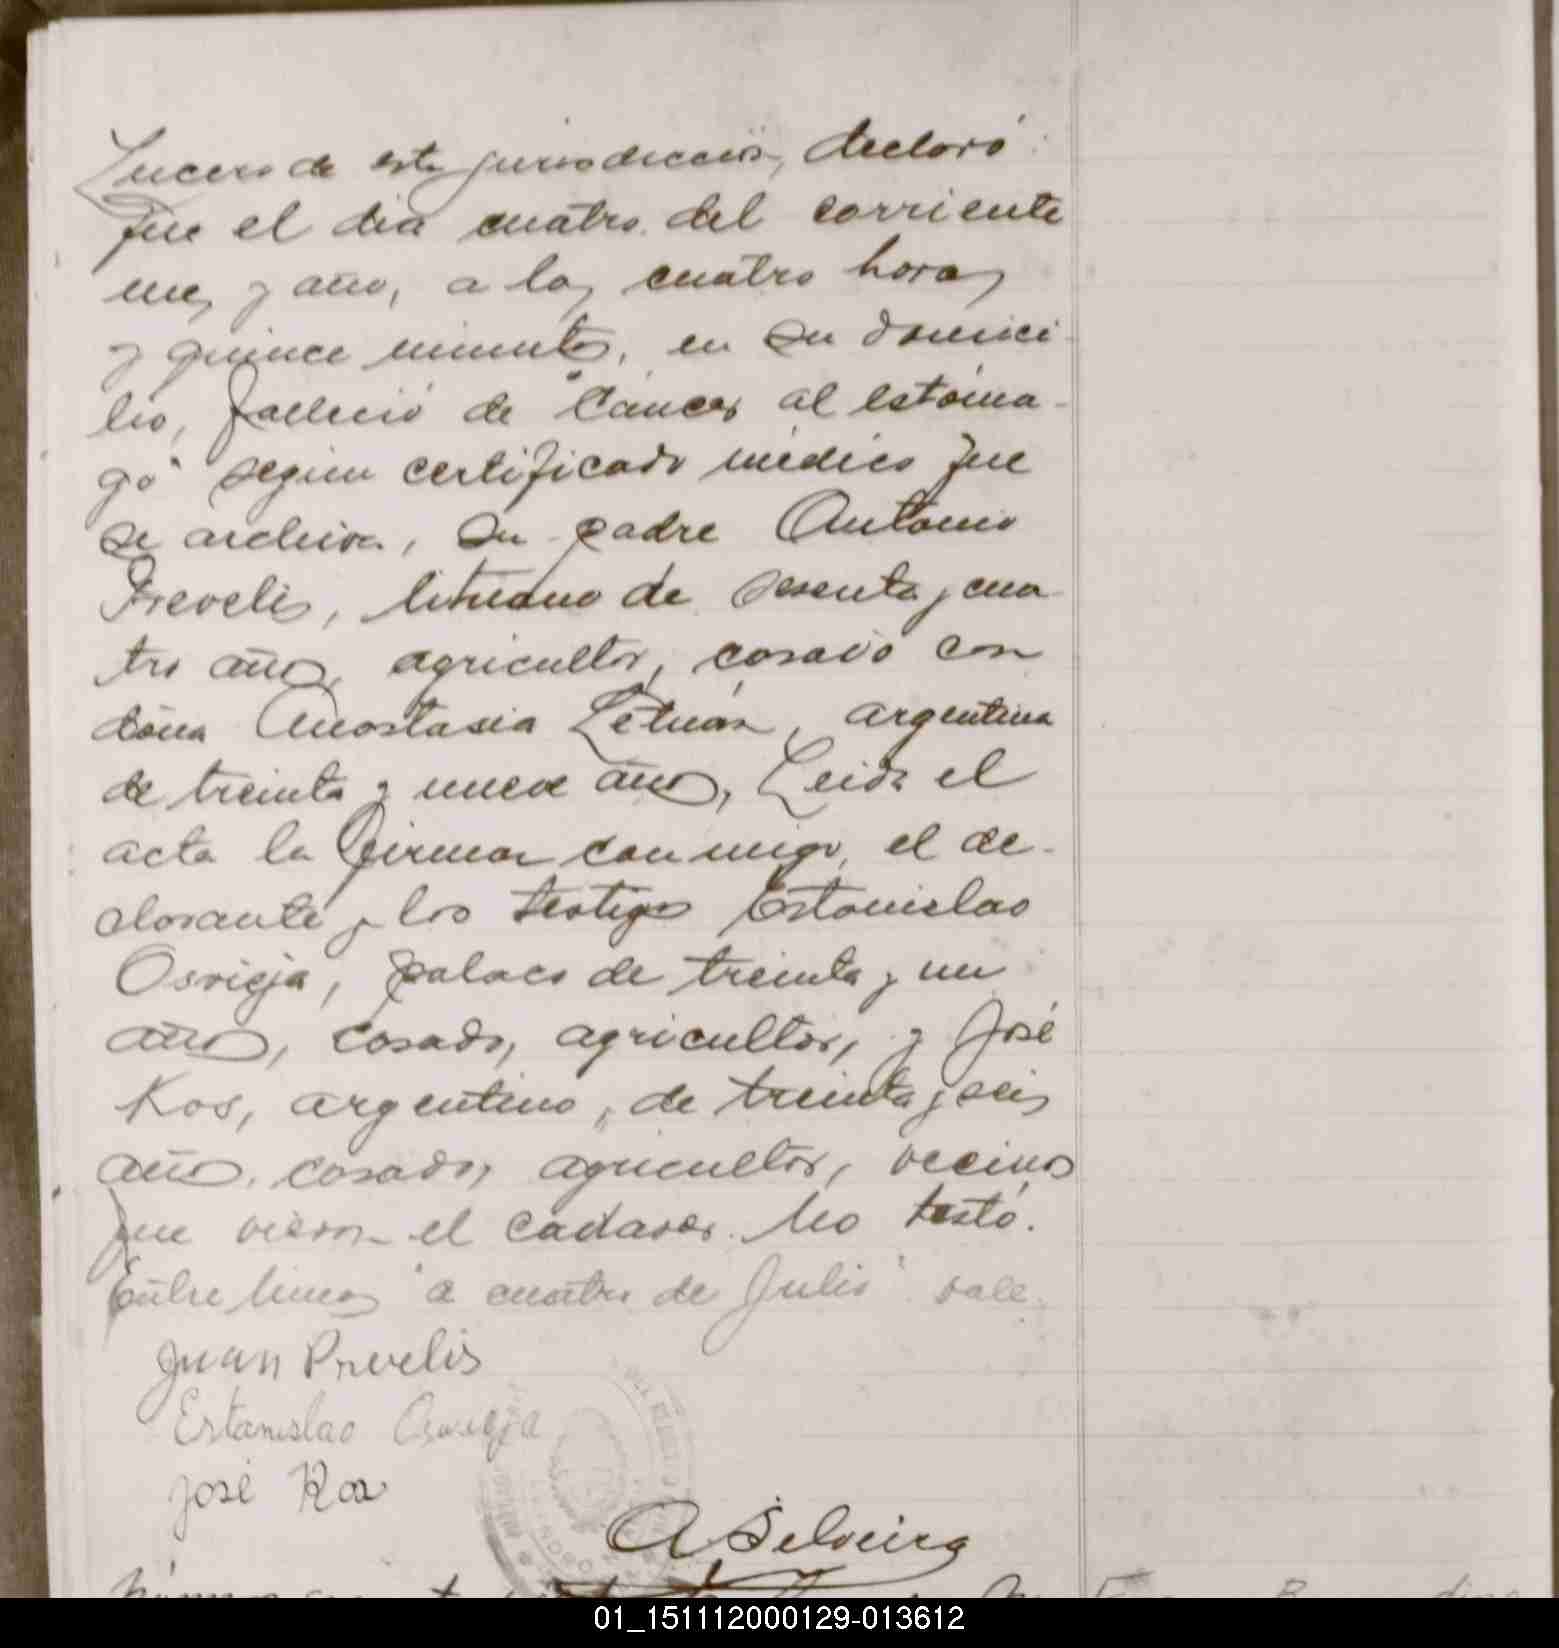 Lucero de esta jurisdicción, declaró:
que el dia cuatro del corriente
mes y año, a las cuatro horas
y quince minutos, en su domici-
lio, falleció de "Cáncer al estóma-
go" segun certificado médico que
se archiva, su padre Antonio
Prevelis, lituano de sesenta y cua-
tro años, agricultor, casado con
doña Anastasia Letuán, argentina
de treinta y nueve años, Leida el
acta la firman conmigo, el de-
clarante y los testigos Estanislao
Osvieja, polaco de treinta y un
años, casado, agricultor, y José
Kos, argentino, de treinta y seis
años, casado, agricultor, vecinos
que vieron el cadaver. No testó.
Entre lineas "a cuatro de Julio" vale.
Juan Prevelis
Estanislao
José Kos
A Silveira
01_151112000129-013612